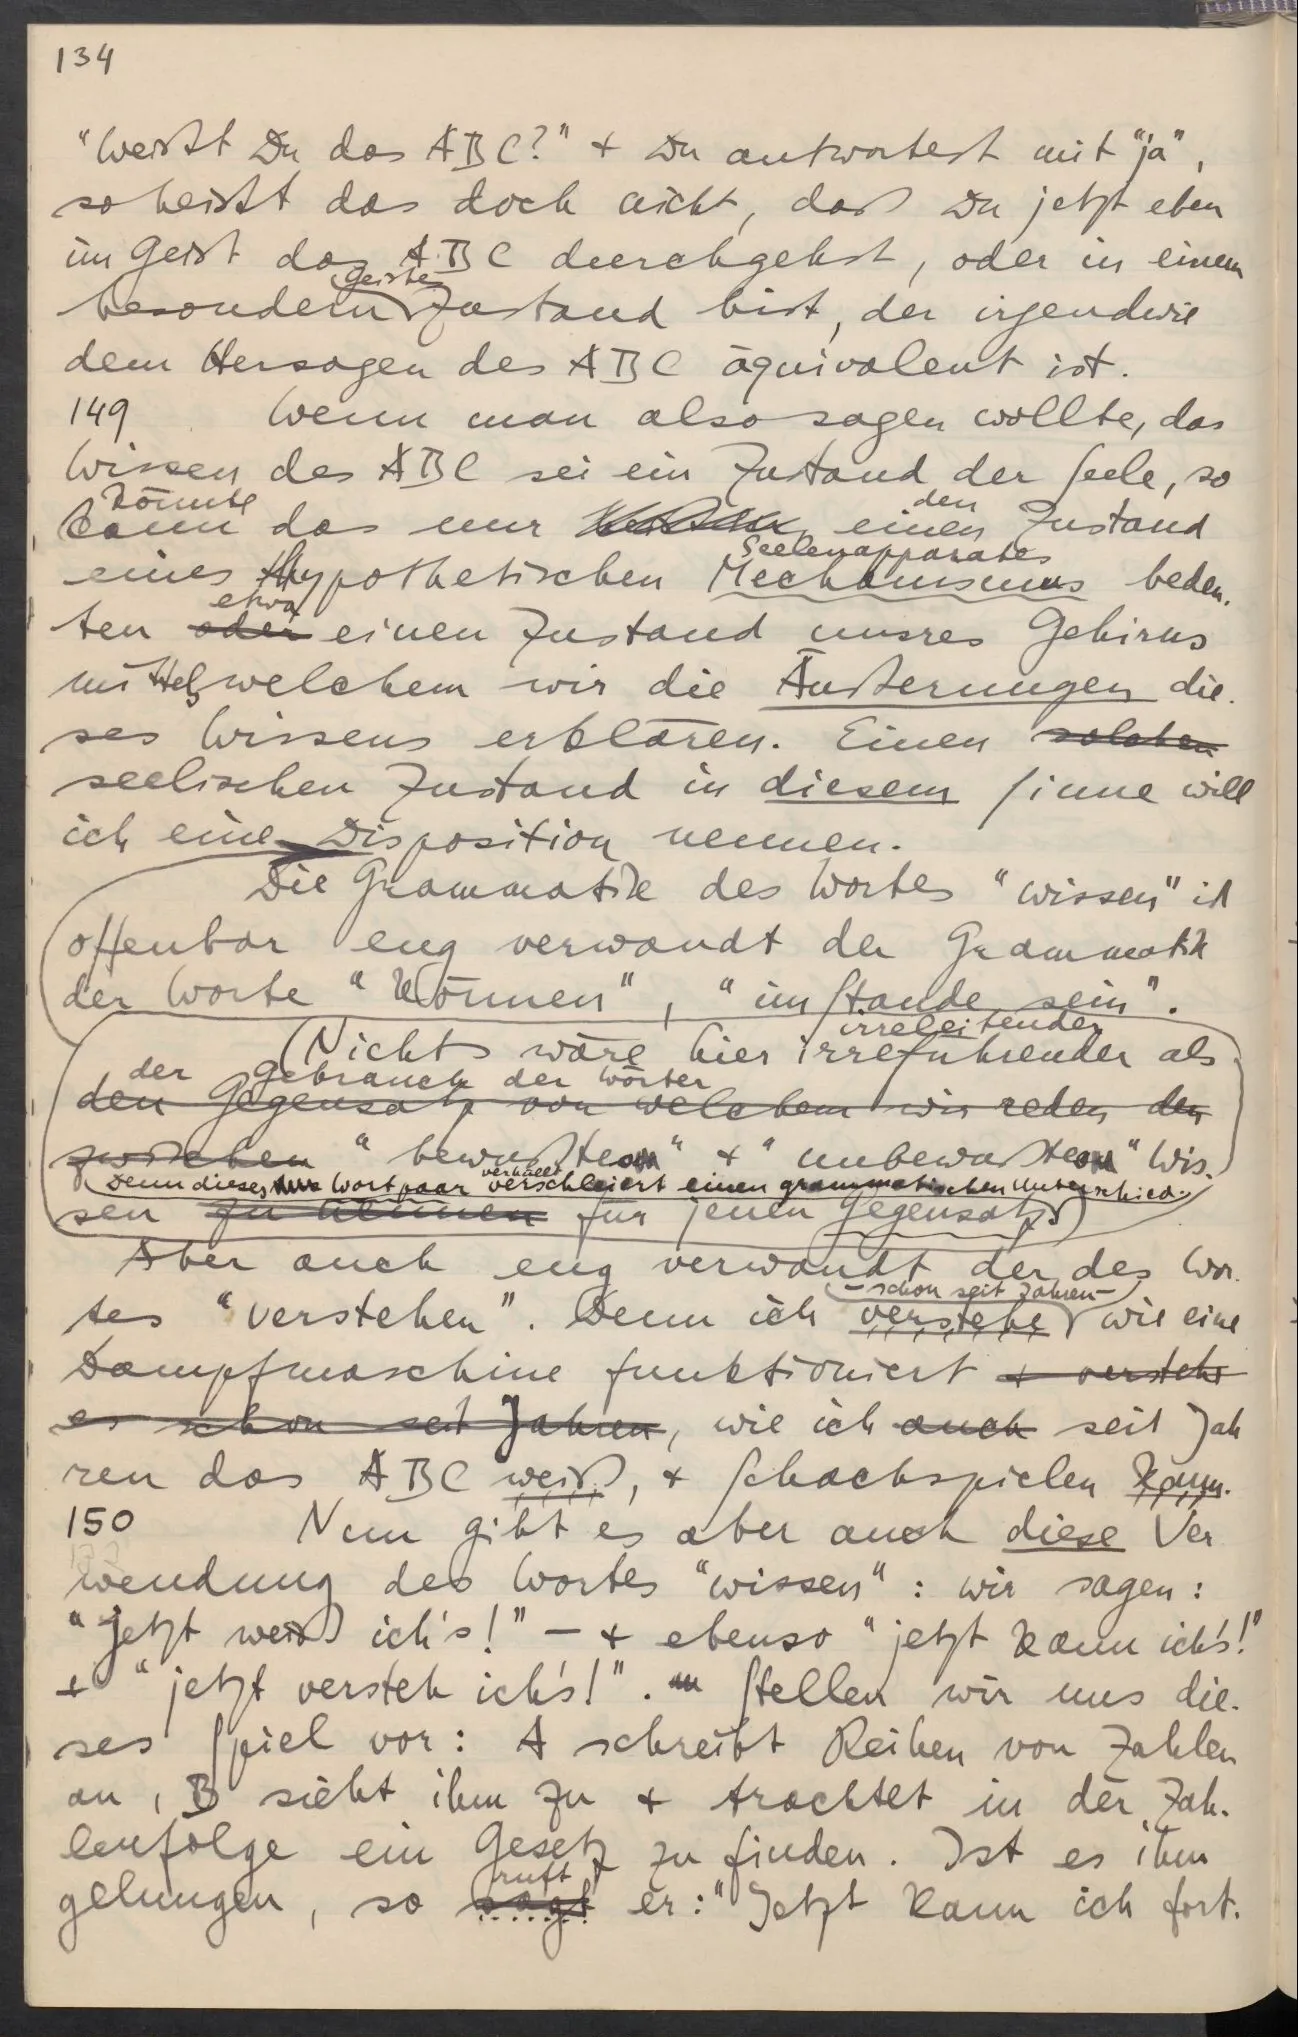 134
"Weißt Du das ABC?" + Du antwortest mit "ja",
so heißt das doch nicht, daß Du jetzt eben
im Geist das ABC durchgehst, oder in einem
Geistes
besondern Zustand bist, der irgendwie
dem Hersagen des ABC äquivalent ist.
149 Wenn man also sagen wollte, das
Wissen des ABC sei ein Zustand der Seele, so
könnte den
kann das nur einen Zustand
Seelenapparates
eines Hypothetischen Mechanismus bedeu-
etwa
ten oder einen Zustand unsres Gehirns
mittels welchem wir die Äußerungen die-
ses Wissens erklären. Einen solchen
seelischen Zustand in diesem Sinne will
ich eine Disposition nennen.
Die Grammatik des Wortes "wissen" ist
offenbar eng verwandt der Grammatik
der Worte "können", "im Stande sein".
irreleitender
(Nichts wäre hier irreführender als
der Gebrauch der Wörter
den Gegensatz von welchem wir reden den
zwischen "bewußtem" + "unbewußtem" Wis-
verhüllt
Denn dieses Wortpaar verschleiert einen grammatischen Unterschied.
sen zu nennen für jenen Gegensatz)
Aber auch eng verwandt der des Wor-
– schon seit Jahren –
tes "verstehen". Denn ich verstehe wie eine
Dampfmaschine funktioniert + verstehe
es schon seit Jahren, wie ich auch seit Jah
ren das ABC weiß, + Schachspielen kann.
150 Nun gibt es aber auch diese Ver
wendung des Wortes "wissen": wir sagen:
"jetzt weiß ich's!" – + ebenso "jetzt kann ich's!"
+ "jetzt versteh ich's!". Stellen wir uns die-
ses Spiel vor: A schreibt Reihen von Zahlen
an, B sieht ihm zu + trachtet in der Zah-
lenfolge ein Gesetz zu finden. Ist es ihm
ruft
gelungen, so sagt er: "Jetzt kann ich fort-